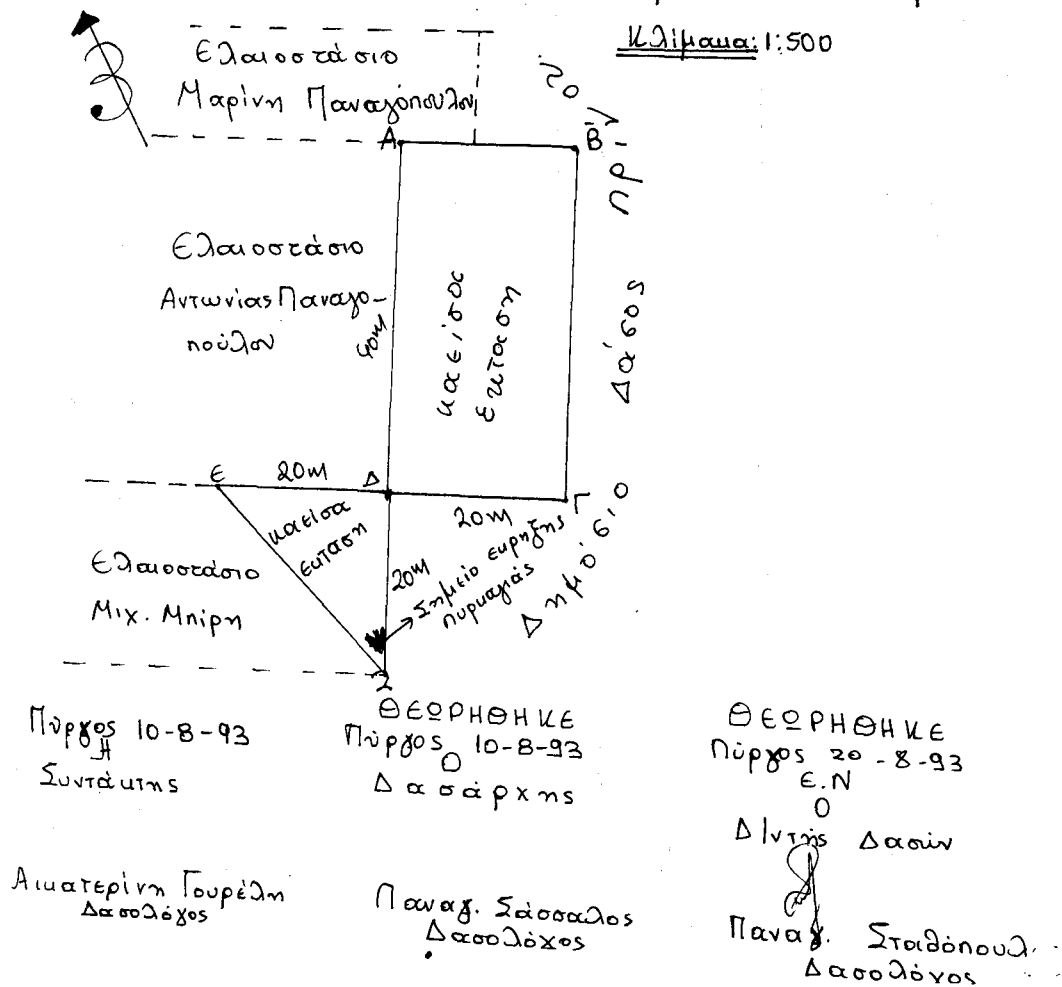 Κλίμακα: 1:500
Ελαιοστάσιο
Μαρίνη Παναγόπουλου
Α
Β
Ελαιοστάσιο
Αντωνίας Παναγο-
πούλου
40m
καείσα
έκταση
Δημόσιο Δάσος
Ε
20m
Δ
20m
Γ
καείσα
έκταση
20m
Σημείο εκρηξης
πυρκαγιάς
Ελαιοστάσιο
Μιχ. Μπίρη
Ζ
Πύργος 10-8-93
Η
Συντάκτης
Αικατερίνη Γουρέλη
Δασολόγος
ΘΕΩΡΗΘΗΚΕ
Πύργος 10-8-93
Ο
Δασάρχης
Παναγ. Σάσσαλος
Δασολόγος
ΘΕΩΡΗΘΗΚΕ
Πύργος 20-8-93
Ε.Ν
Ο
Δ/ντής Δασών
Παναγ. Σταθόπουλ
Δασολόγος